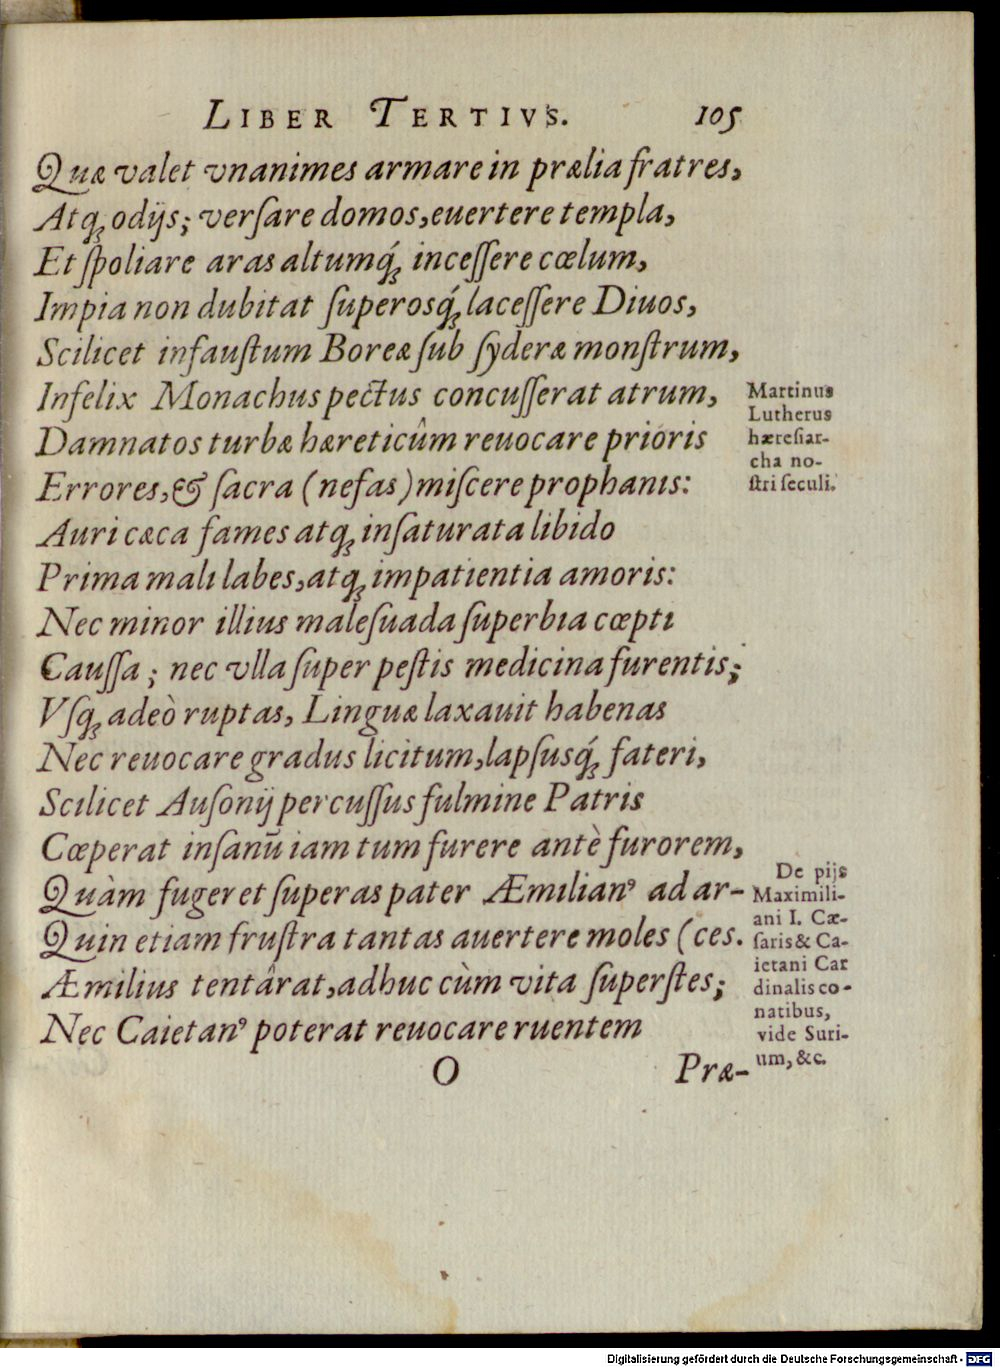 LIBER TERTIVS. 105
Quæ valet vnanimes armare in prælia fratres,
Atq; odijs; versare domos, euertere templa,
Et spoliare aras altumq́; incessere cœlum,
Impia non dubitat superosq́; lacessere Diuos,
Scilicet infaustum Boreæ sub syderæ monstrum,
Infelix Monachus pectus concusserat atrum,
Damnatos turbæ hæreticûm reuocare prioris
Errores, & sacra (nefas) miscere prophanis:
Auri cæca fames atq; insaturata libido
Prima mali labes, atq; impatientia amoris:
Nec minor illius malesuada superbia cœpti
Caussa; nec vlla super pestis medicina furentis;
Vsq; adeò ruptas, Linguæ laxauit habenas
Nec reuocare gradus licitum, lapsusq́; fateri,
Scilicet Ausonij percussus fulmine Patris
Cœperat insanũ iam tum furere antè furorem,
Quàm fugeret superas pater Æmilianꝰ ad ar-
Quin etiam frustra tantas auertere moles (ces.
Æmilius tentârat, adhuc cùm vita superstes;
Nec Caietanꝰ poterat reuocare ruentem
O Præ-
Martinus
Lutherus
hæresiar-
cha no-
stri seculi.
De pijs
Maximili-
ani I. Cæ-
saris & Ca-
ietani Car
dinalis co-
natibus,
vide Suri-
um, &c.
Digitalisierung gefördert durch die Deutsche Forschungsgemeinschaft - DFG